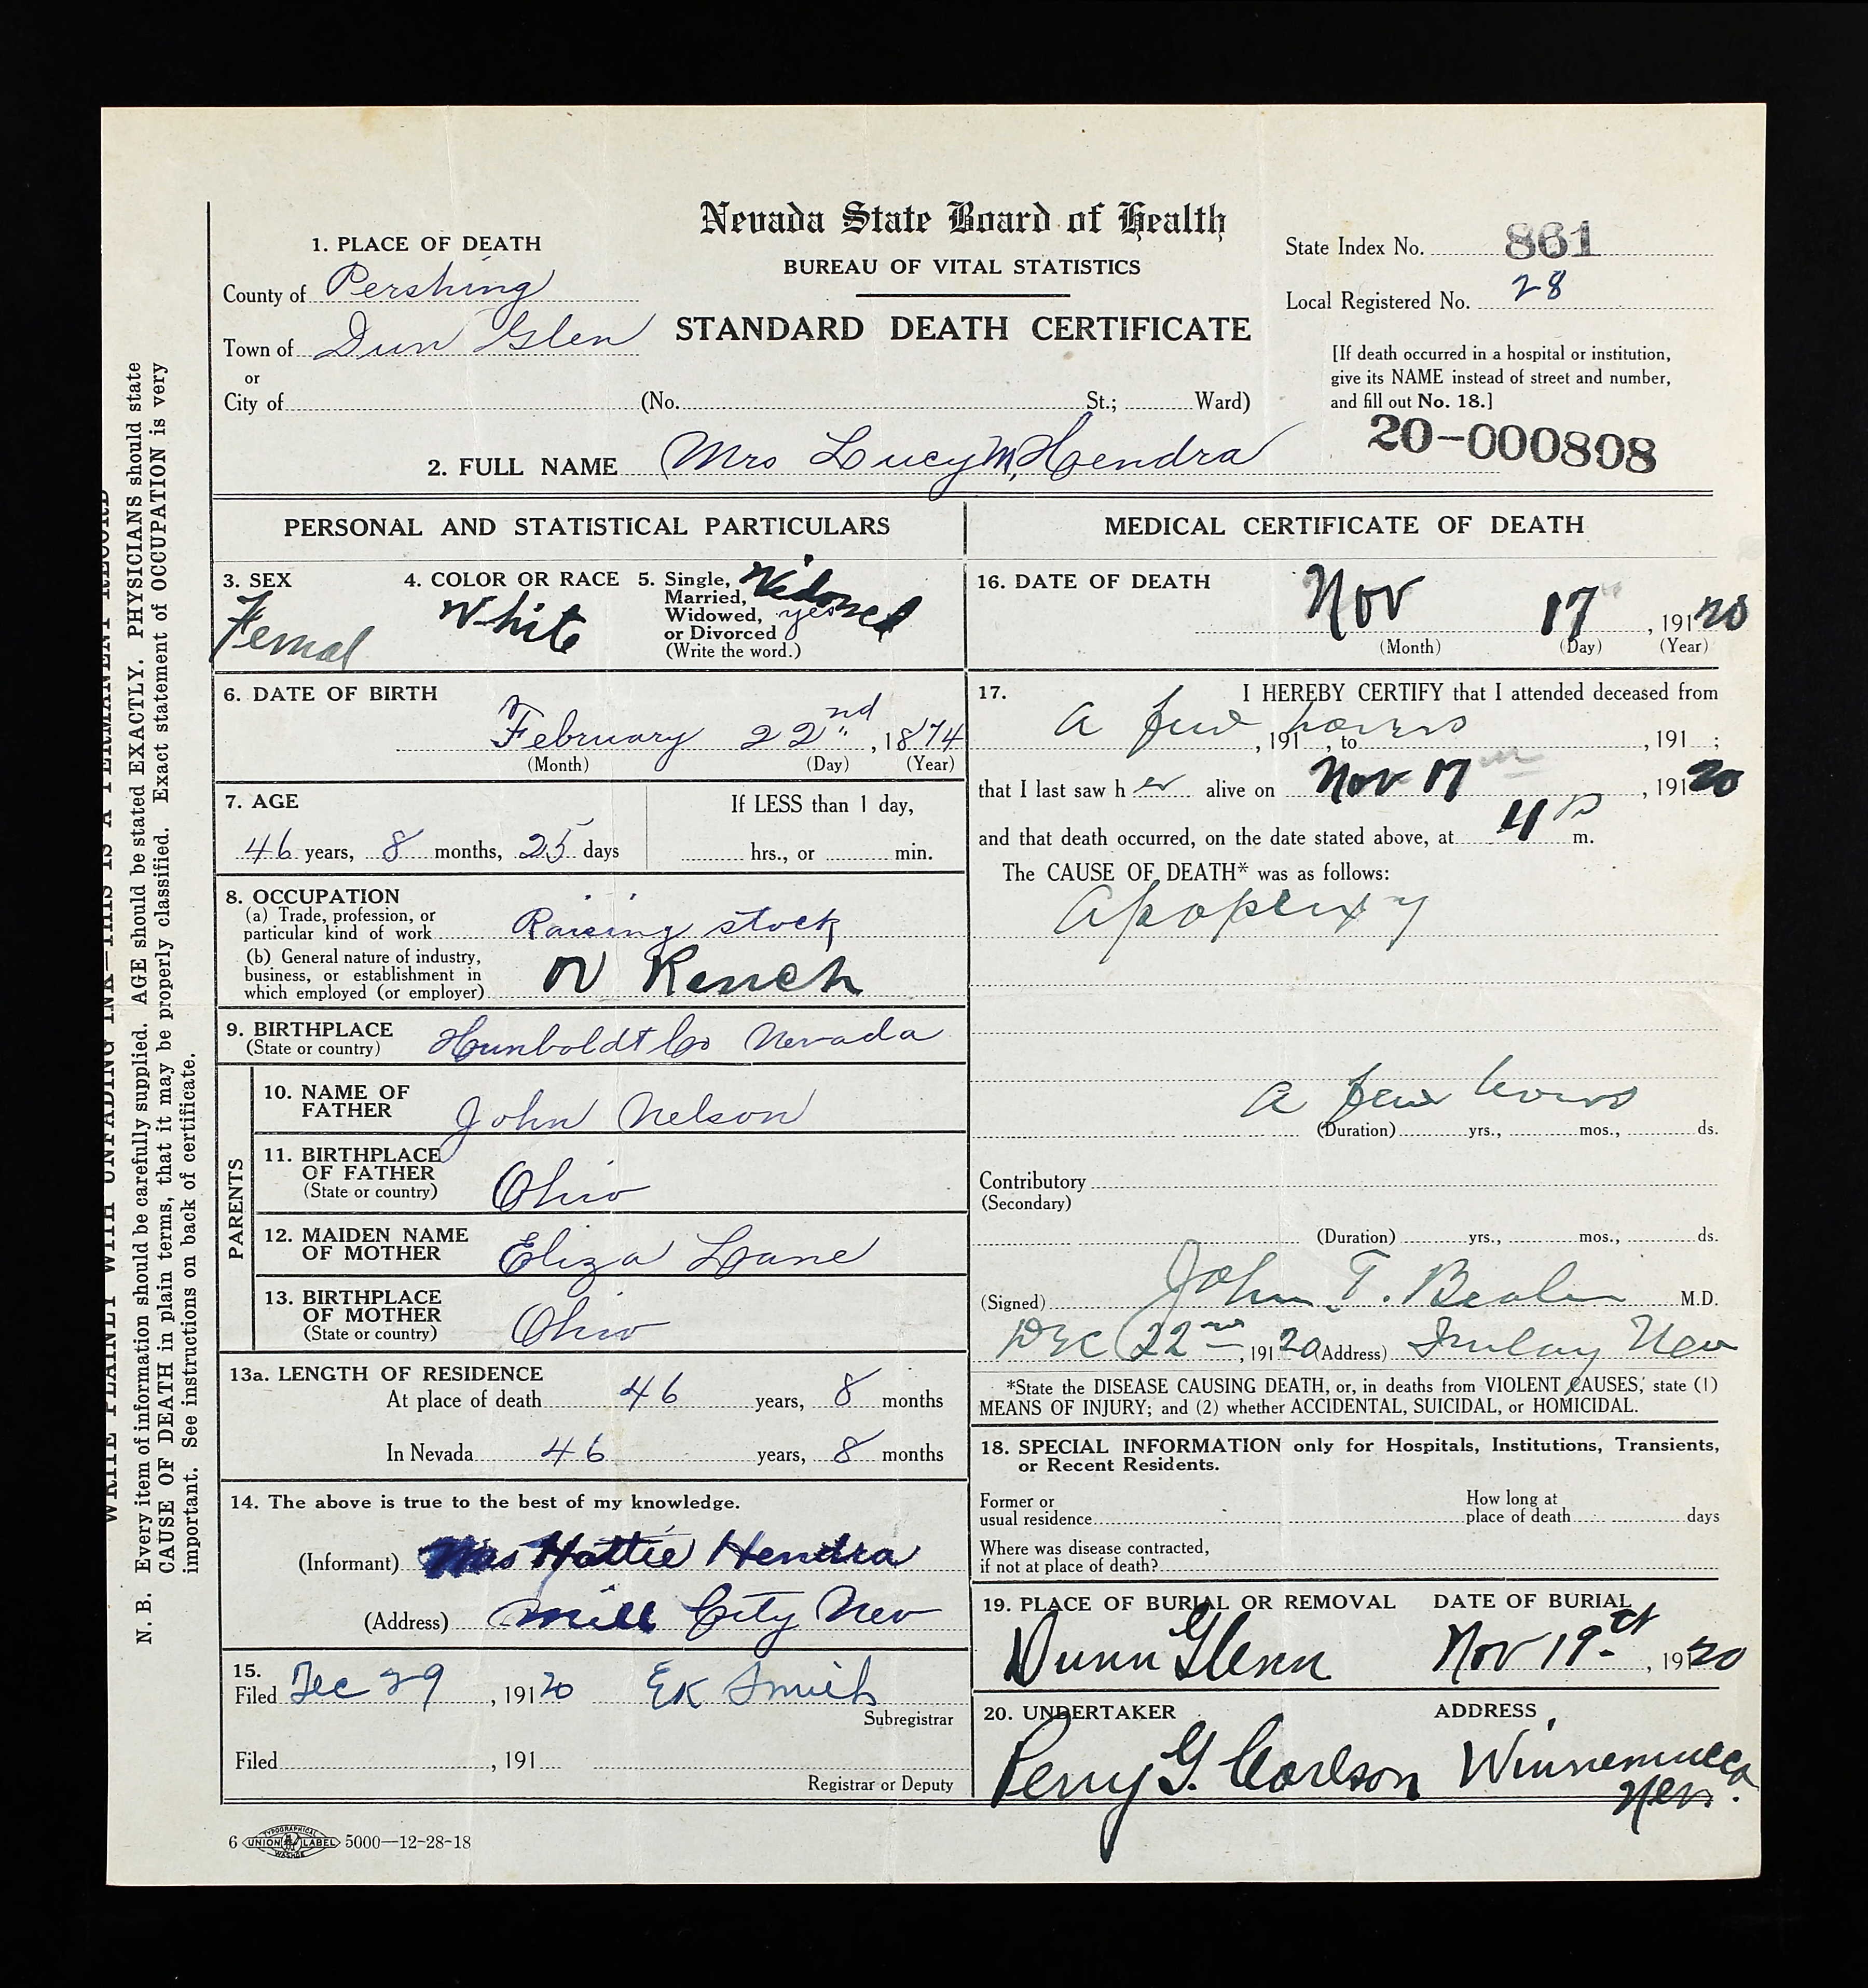 Nevada State Board of Health
BUREAU OF VITAL STATISTICS
STANDARD DEATH CERTIFICATE
1. PLACE OF DEATH
County of Pershing
Town of Dun Glen
or
City of (No. St.; Ward)
State Index No. 861
Local Registered No. 28
[If death occurred in a hospital or institution,
give its NAME instead of street and number,
and fill out No. 18.]
20-000808
2. FULL NAME Mrs Lucy M. Hendra
PERSONAL AND STATISTICAL PARTICULARS
3. SEX
Femal
4. COLOR OR RACE
White
5. Single,
Married,
Widowed,
or Divorced
(Write the word.)
Widowed
yes
6. DATE OF BIRTH
February 22nd, 1874
(Month) (Day) (Year)
7. AGE
46 years, 8 months, 25 days
If LESS than 1 day,
hrs., or min.
8. OCCUPATION
(a) Trade, profession, or
particular kind of work Raising stock
(b) General nature of industry,
business, or establishment in
which employed (or employer) on Rench
9. BIRTHPLACE
(State or country) Hunboldt Co Nevada
PARENTS
10. NAME OF
FATHER John Nelson
11. BIRTHPLACE
OF FATHER
(State or country) Ohio
12. MAIDEN NAME
OF MOTHER Eliza Lane
13. BIRTHPLACE
OF MOTHER
(State or country) Ohio
13a. LENGTH OF RESIDENCE
At place of death 46 years, 8 months
In Nevada 46 years, 8 months
14. The above is true to the best of my knowledge.
(Informant) Mrs Hattie Hendra
(Address) Mill City Nev
15.
Filed Dec 29, 1920 EK Smith
Subregistrar
Filed , 191
Registrar or Deputy
MEDICAL CERTIFICATE OF DEATH
16. DATE OF DEATH
Nov 17, 19120
(Month) (Day) (Year)
17. I HEREBY CERTIFY that I attended deceased from
a few hours
, 191 , to , 191 ;
that I last saw her alive on Nov 17, 19120
and that death occurred, on the date stated above, at 4 P m.
The CAUSE OF DEATH* was as follows:
Apoplexy
a few hours
(Duration) yrs., mos., ds.
Contributory
(Secondary)
(Duration) yrs., mos., ds.
(Signed) John T. M.D.
Dec 22nd, 19120 Address) Imlay Nev
*State the DISEASE CAUSING DEATH, or, in deaths from VIOLENT CAUSES, state (1)
MEANS OF INJURY; and (2) whether ACCIDENTAL, SUICIDAL, or HOMICIDAL.
18. SPECIAL INFORMATION only for Hospitals, Institutions, Transients,
or Recent Residents.
Former or
usual residence
How long at
place of death days
Where was disease contracted,
if not at place of death?
19. PLACE OF BURIAL OR REMOVAL
Dunn Glenn
DATE OF BURIAL
Nov 19, 1920
20. UNDERTAKER
Perry G. Carlson
ADDRESS
Winnemucca
Nev.
6 TYPOGRAPHICAL UNION LABEL 5000—12-28-18
WRITE PLAINLY WITH UNFADING INK—THIS IS A PERMANENT RECORD
N. B. Every item of information should be carefully supplied. AGE should be stated EXACTLY. PHYSICIANS should state
CAUSE OF DEATH in plain terms, that it may be properly classified. Exact statement of OCCUPATION is very
important. See instructions on back of certificate.